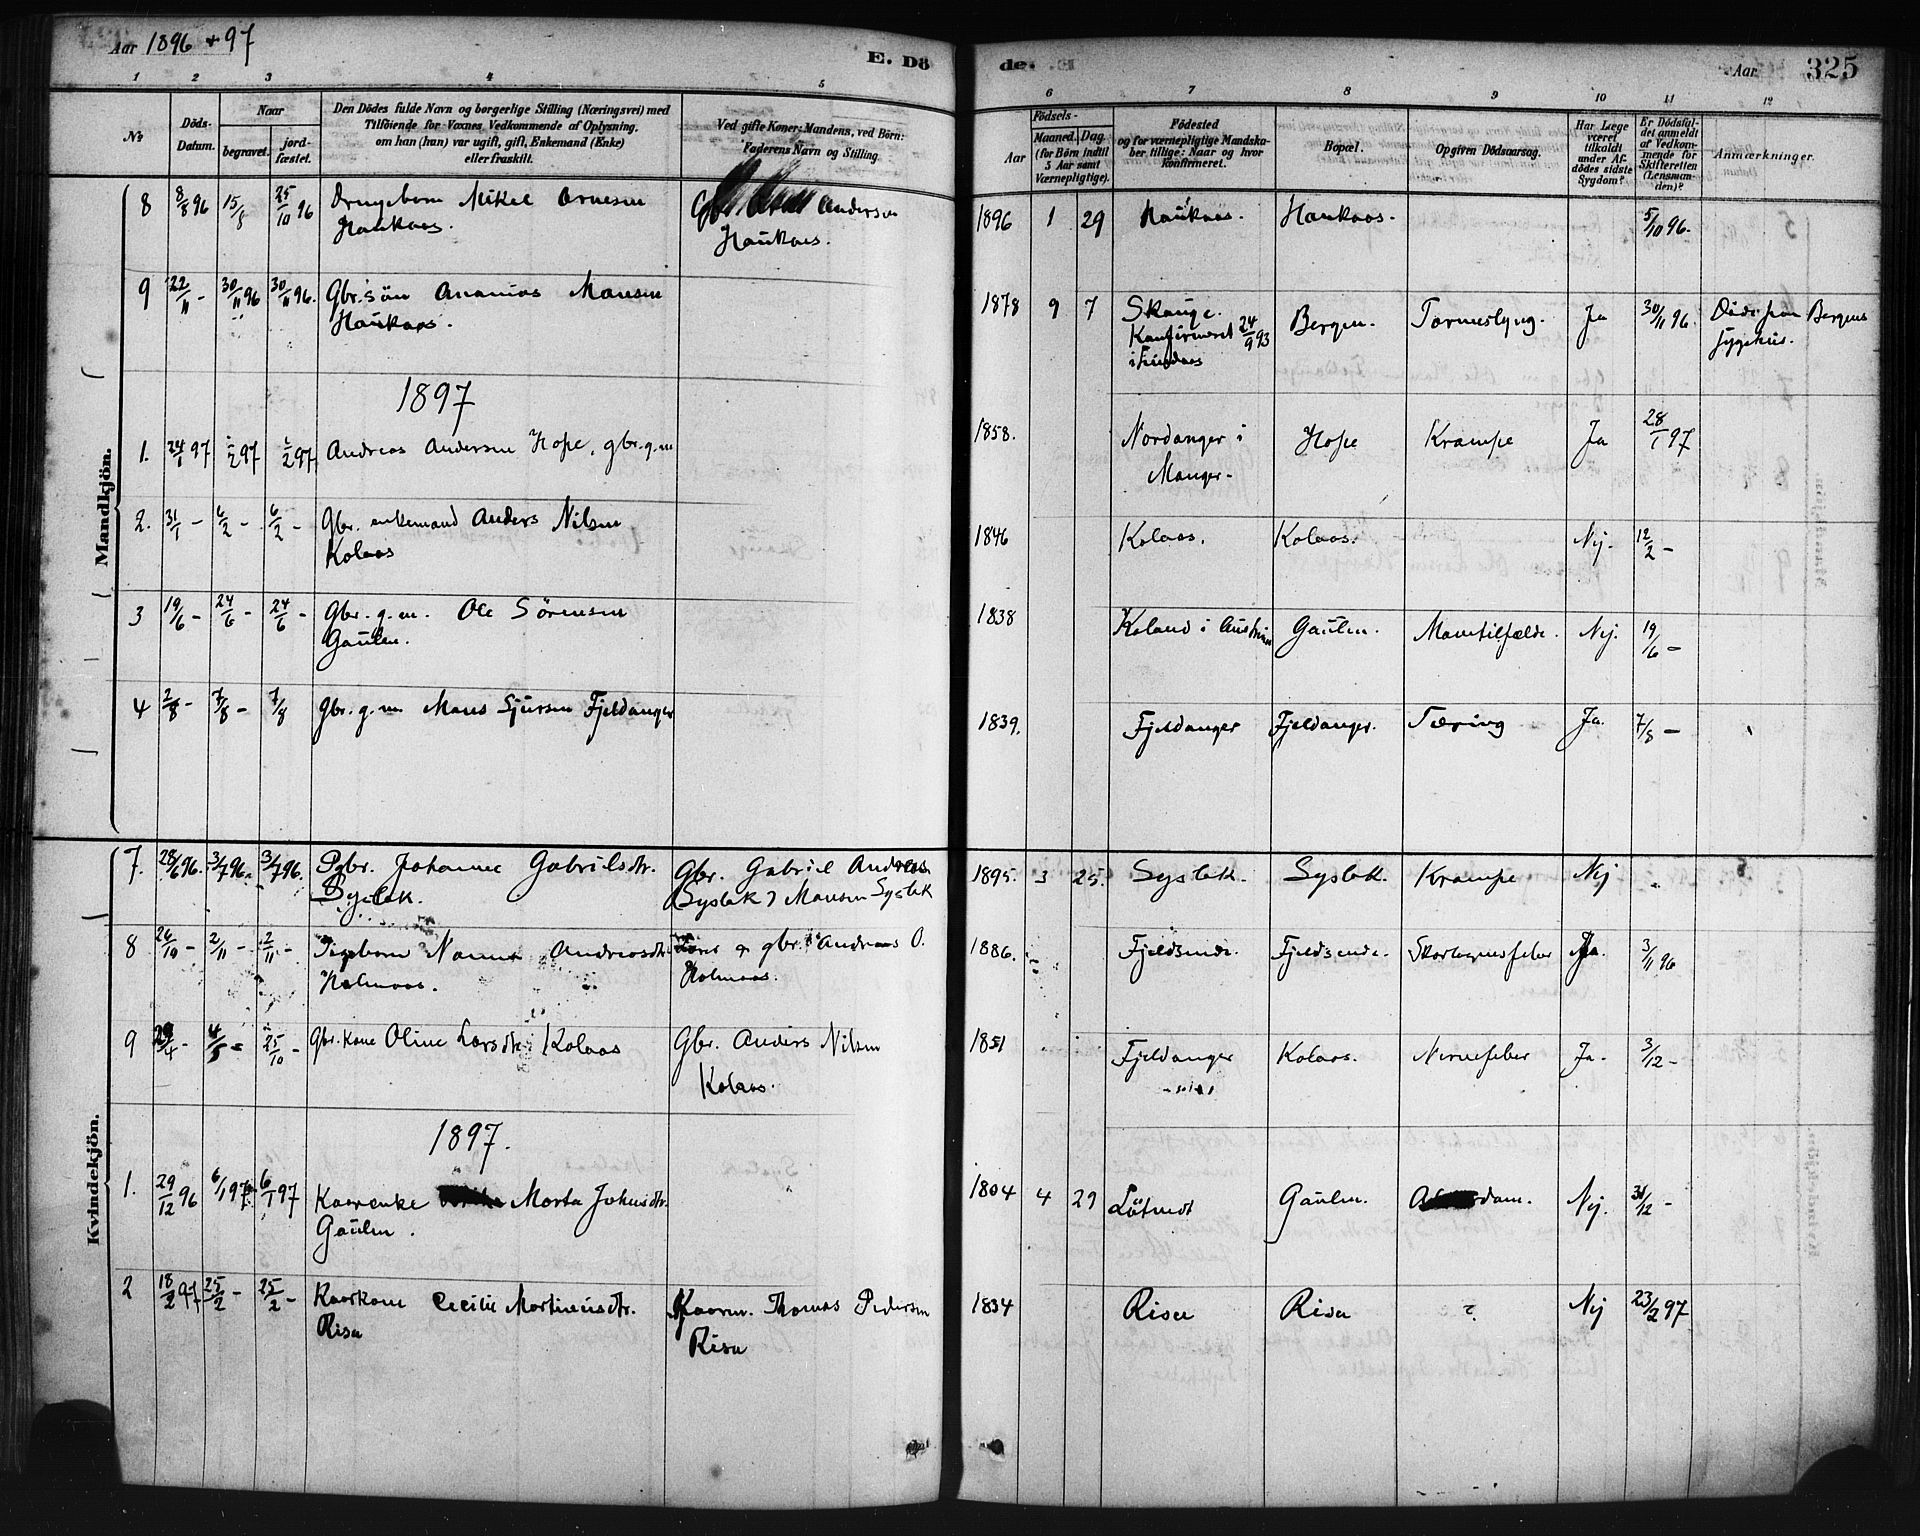 Aar 1896 + 97
E. Dö
de.
Aar
325
1 2 3 4 5 6 7 8 9 10 11 12
No
Döds-
Datum.
Naar
begravet.
jord-
fæstet.
Den Dödes fulde Navn og borgerlige Stilling (Næringsvei) med
Tilföiende for Voxnes Vedkommende af Oplysning,
om han (hun) var ugift, gift, Enkemand (Enke)
eller fraskilt.
Ved gifte Koner: Mandens, ved Börn:
Faderens Navn og Stilling.
Födsels-
Aar
Maaned. Dag
(for Börn indtil
5 Aar samt
Værnepligtige).
Födested
og for værnepligtige Mandska-
ber tillige: Naar og hvor
konfirmeret.
Bopæl.
Opgiven Dödsaarsag.
Har Læge
været
tilkaldt
under Af-
dödes sidste
Sygdom?
Er Dödsfal-
det anmeldt
af Vedkom-
mende for
Skifteretten
(Lensman-
den)?
Anmærkninger.
Mandkjön.
8 8/8 96 15/8 25/10 96 Drengebarn Mikal Arnesen Gbr. Andersen 1896 1 29 Haukaas. Haukaas. 5/10 96.
Haukaas. Haukaas.
9 22/11 - 30/11 96 30/11 96. Gbr.'s sön Ananias Monsen 1878 9 7 Skauge. Bergen. Ja 30/11 96. Döde paa Bergens
Haukaas. Konfirmeret 24/9 93 sygehus.
i
1897
1. 24/1 97 /2 97 /2 97 Andreas Andersen Hope, gbr. g.m 1858. Nordanger i Hope Krampe Ja 28/1 97
Manger-
2. 31/1 - 6/2 - 6/2 - Gbr. enkemand Anders Nilsen 1846 Kolaas. Kolaas. Nej. 12/2 -
Kolaas
3 19/6 - 24/6 - 24/6 - Gbr. g.m. Ole Sörensen 1838 Koland i Gaulen. Mavetilfælde. Nej. 19/6 -
Gaulen.
4 2/8 - 7/8 - 7/8 Gbr. g.m Mons Sjursen Fjeldanger 1839. Fjeldanger Fjeldanger. Tæring Ja. 7/8 -
Kvindekjön.
7. 28/6 96. 3/7 96. 3/7 96. Pgbr. Johanne Gabrilsdtr. Gbr. Gabriel Andreas 1895. 3 25. Syslak. Syslak. Krampe Nej
Syslak. (Syslak) Monsen Syslak
8 26/10 - 2/11 - 2/11 - Pigebarn Nanna Andreasdtr. gbr. Andreas O. 1886. Fjeldsende. Fjeldsende. Skarlagensfeber Ja. 3/11 96
Holmaas. Holmaas.
9 29/4 - 4/5 - 25/10 - Gbr. kone Oline Larsdtr Kolaas Gbr. Anders Nilsen 1851 Fjeldanger Kolaas. Nervefeber Ja. 3/12 -
Kolaas.
1897.
1. 29/12 96 6/1 97 6/1 97 Kaarenke Marta Johnsdtr. 1804 4 29 Gaulen. Nej. 31/12 -
Gaulen.
2 18/2 97 25/2 - 25/2 - Kaarkone Cecilie Martinusdtr. Kaarm. Thomas Pedersen 1834 Risa Risa ? Nej 23/2 97
Risa Risa